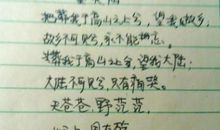 葬我于高山之上兮,望我故乡,
故乡不可见兮,永不能忘。
葬我于高山之上兮,望我大陆,
大陆不可见兮,只有痛哭。
天苍苍,野茫茫,
山之上,国有殇